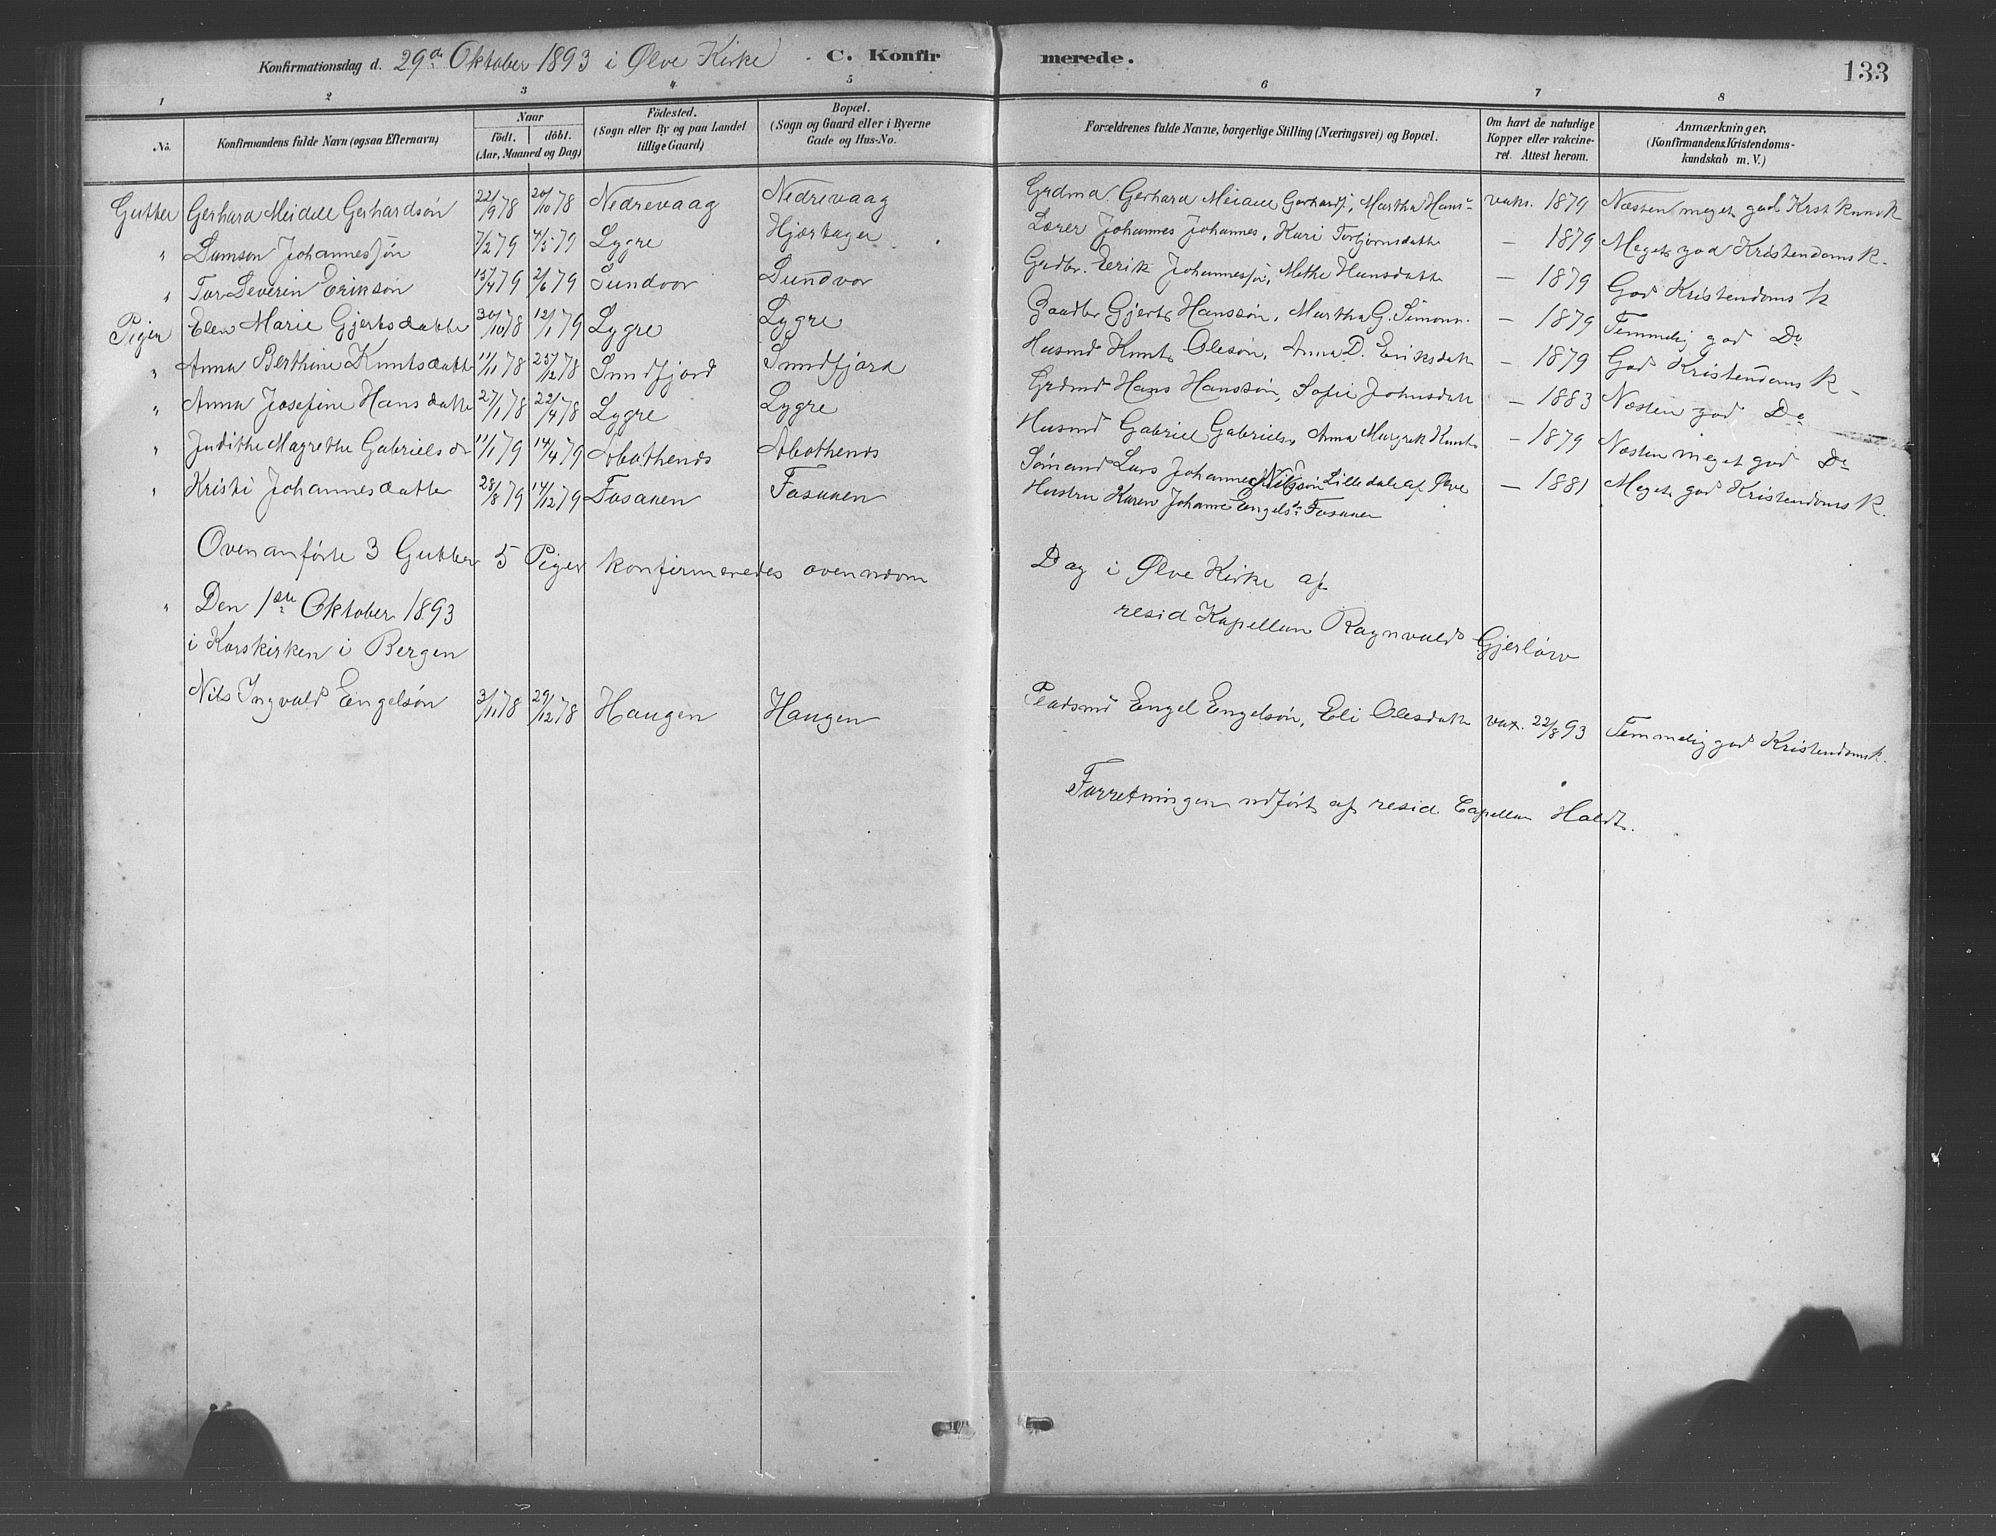 Konfirmationsdag d. 29de Oktober 1893 i Ølve Kirke C. Konfir merede. 133
1 2 3 4 5 6 7 8
No. Konfirmandens fulde Navn (ogsaa Efternavn) Naar födt. döbt. (Aar, Maaned og Dag) Födested. (Sogn eller By og paa Landet tillige Gaard) Bopæl. (Sogn og Gaard eller i Byerne Gade og Hus-No. Forældrenes fulde Navne, borgerlige Stilling (Næringsvei) og Bopæl. Om havt de naturlige Kopper eller vakcineret. Attest herom. Anmærkninger. (Konfirmandens Kristendomskundskab m. V.)
Gutter Gerhard Meidell Gerhardsön 22/9 78 20/10 78 Nedrevaag Nedrevaag Grdmd. Gerhard Meidell Gerhards, Martha Hans vaks. 1879 Næsten meget god Krist kundsk
" Samson Johannessön 7/2 79 4/5 79 Lygre Hjærtager Lærer Johannes Johannes, Kari Torbjörnsdatter — 1879 Meget god Kristendoms K.
" Tor Severin Erikson 15/4 79 2/6 79 Sundvor Sundvor Grdbr. Eerik Johannessön, Mette Hansdatte — 1879 God Kristendoms K
Piger Elen Marie Gjertsdatte 30/10 78 12/1 79 Lygre Lygre Gaardbr Gjert Hanssön, Martha G. Simons. — 1879 Temmelig god Do
" Anna Berthine Knutsdatte 11/11 78 25/12 78 Sundfjord Sundfjord Husmd Knut Olesön, Anna D. Eriksdatte — 1879 God Kristendoms K
" Anna Josefine Hansdatte 27/1 78 22/4 78 Lygre Lygre Grdmd Hans Hanssön, Sofie Johnsdatte — 1883 Næsten god Do
" Judithe Magrethe Gabrielsdr 11/1 79 14/4 79 Abothends Abothends Husmd Gabriel Gabriels, Anna Margrethe Knuts — 1879 Næsten meget god Do
" Kristi Johannesdatte 28/8 79 14/12 79 Fosanen Fosanen Sömand Lars Johannes Nilsön Lilledale af Ølve — 1881 Meget god Kristendoms K.
Hustru Karen Johanne Engelsdr Fosanen
Ovenanførte 3 Gutter 5 Piger konfirmeredes ovennævn Dag i Ølve Kirke af
resid Kapellan Ragnvald Gjerløw
" Den 1ste Oktober 1893
i Korskirken i Bergen
Nils Ingvald Engelsön 3/11 78 29/12 78 Haugen Haugen Pladsmd Engel Engelsön, Eli Olesdatte vax. 22/8 93 Temmelig god Kristendomsk.
Forretningen udført af resid. Capellan Haldt.